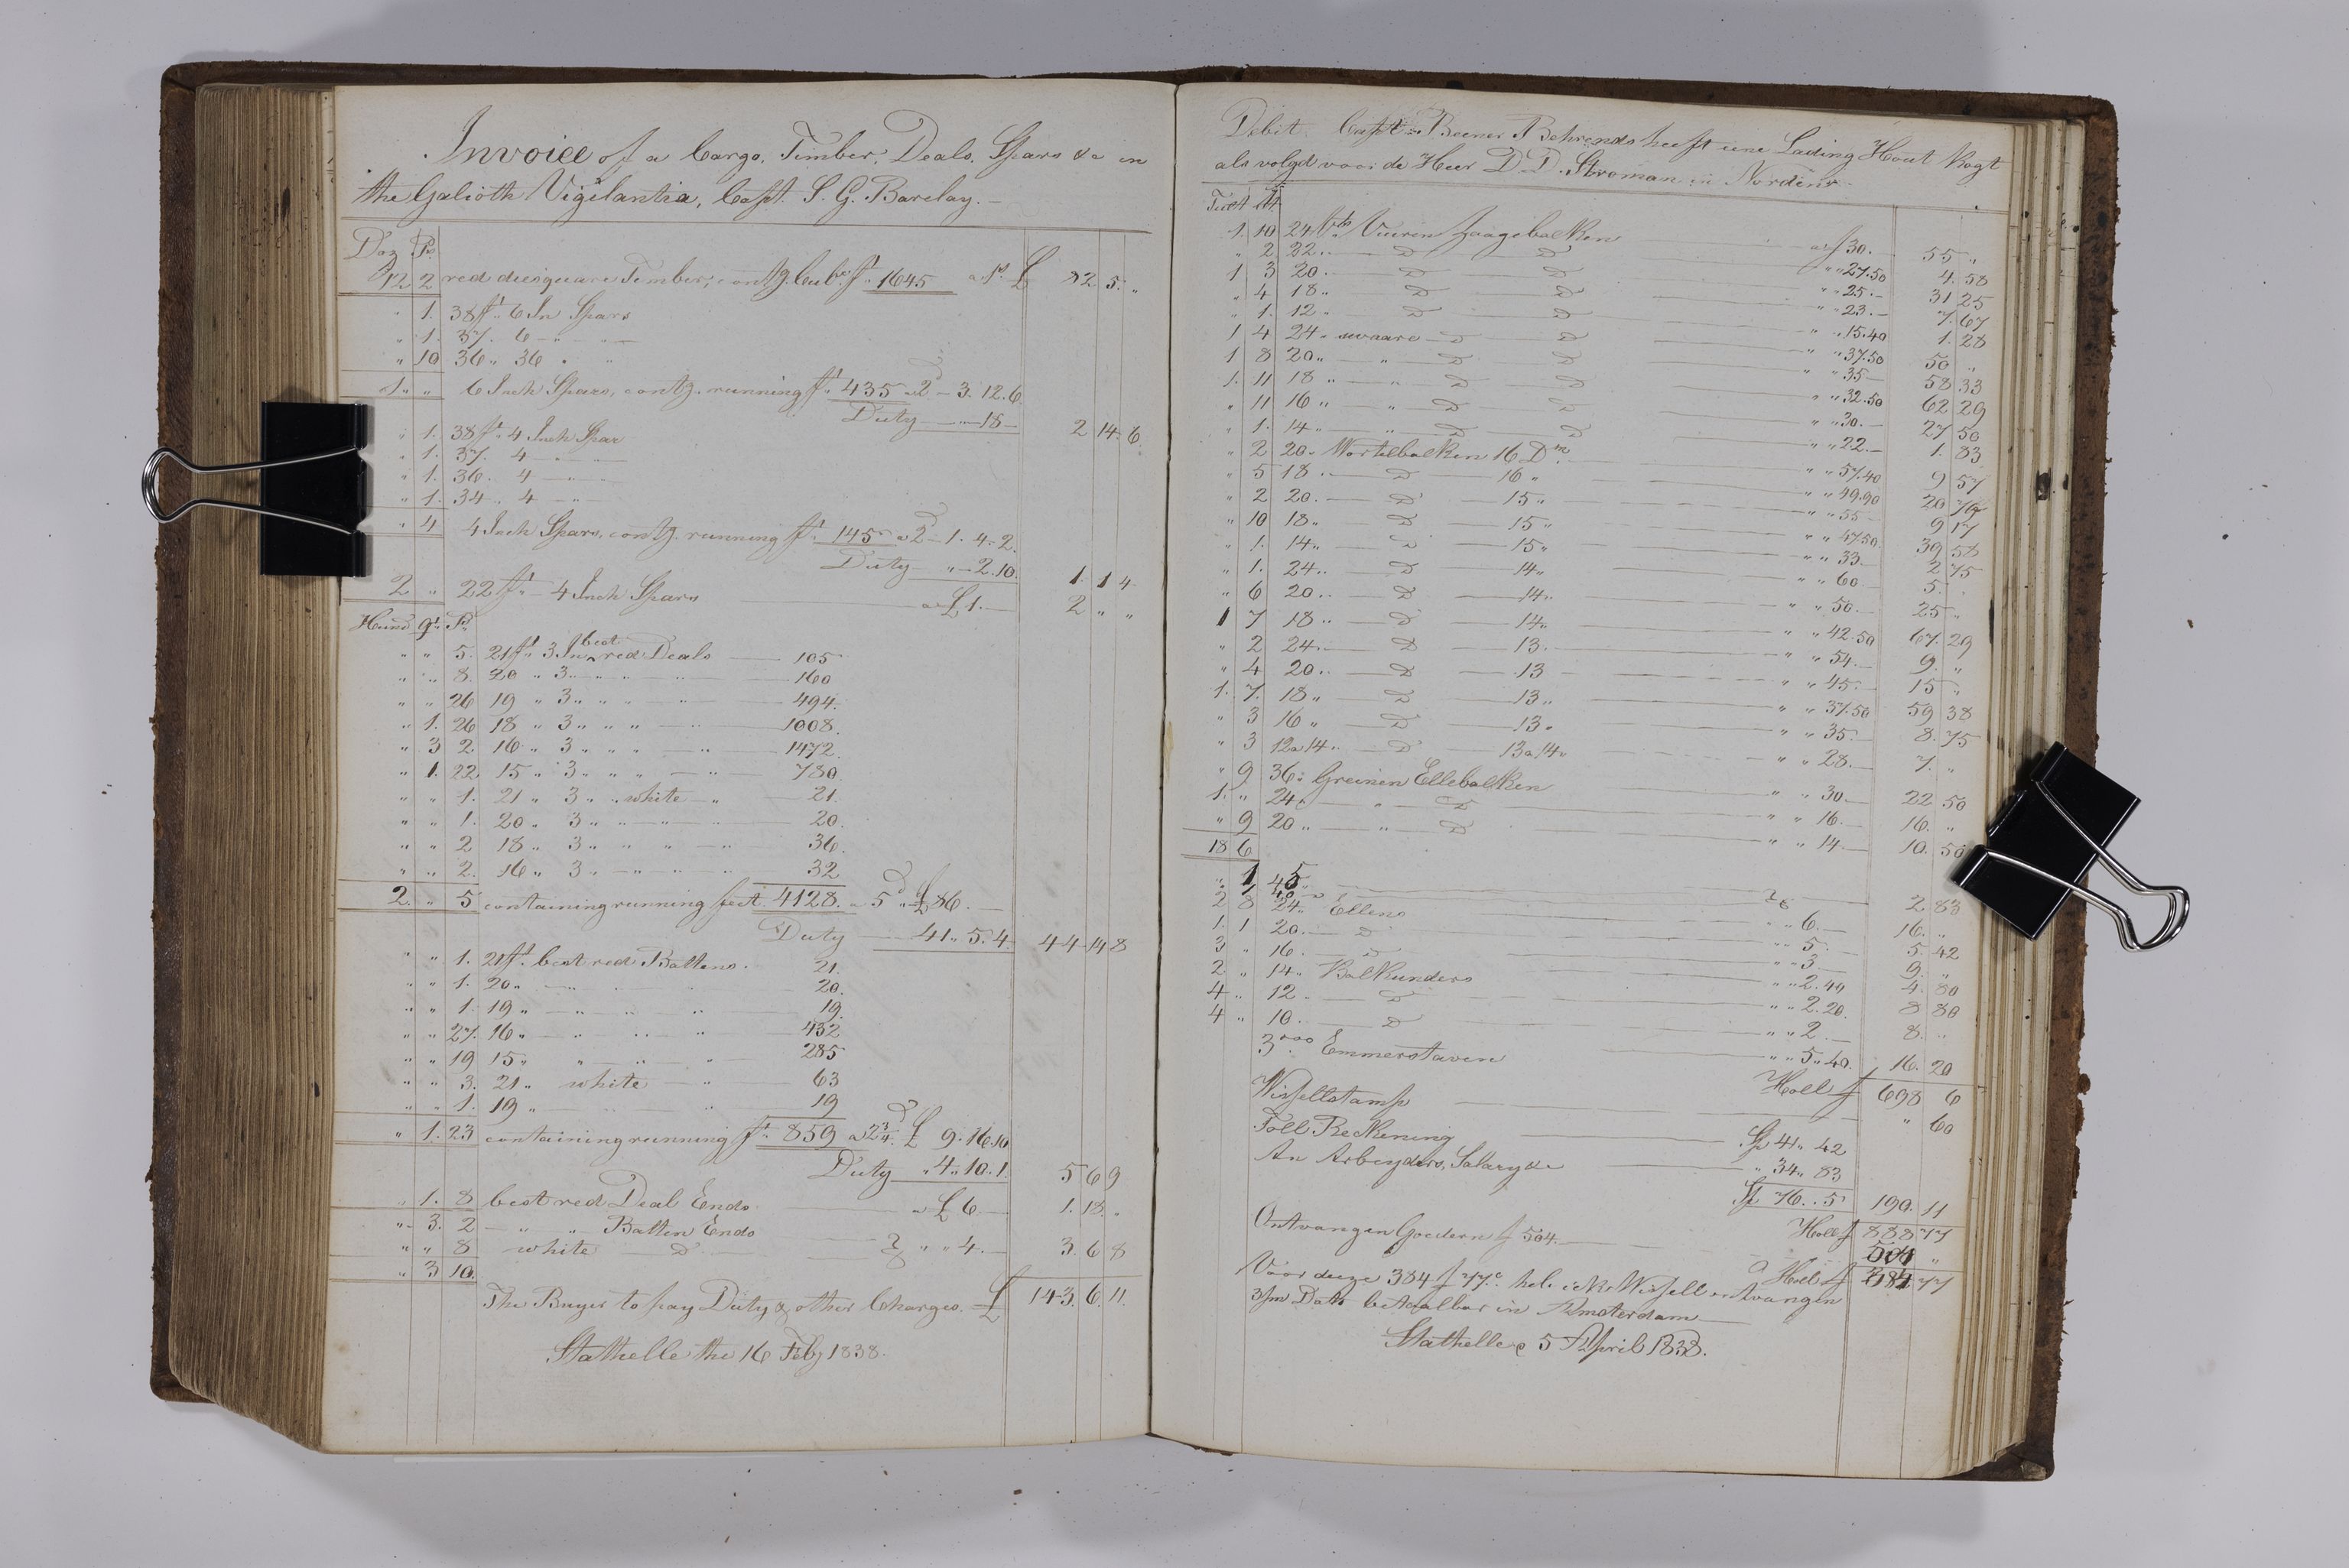 Invoice of a Cargo, Timber, Deals, Spars &c in
the Galioth Vigilantia, Capt. S. G. Barclay. —
Doz Ps
12 2 red diesquare Timber, contg. Cubc ft. 1645 a 1s £ 82 5 "
" 1. 38 ft. 6 In Spars
" 1. 37. 6 — " —
" 10 36 " 36 " "
1 " " 6 Inch Spars, contg. running ft. 435 a 2d — 3. 12. 6
Duty — " 18 — 2 14 6.
" 1. 38 ft. 4 Inch Spar
" 1. 37. 4 — " —
" 1. 36. 4 — " —
" 1. 34. 4 — " —
" 4 4 Inch Spars, contg. running ft. 145 a 2d — 1. 4. 2.
Duty " — 2. 10. 1. 1 4
2 " 22 ft. — 4 Inch Spars — a £ 1. — 2 " "
Hund qr. Ps
" " 5. 21 ft. 3 In best red Deals — 105
" " 8. 20 " 3 " " " — 160
" " 26 19 " 3 " " " — 494.
" 1. 26 18 " 3 " " " — 1008.
" 3 2 16 " 3 " " " — 1472.
" 1. 22 15 " 3 " " " — 780.
" " 1. 21 " 3 " " white — " 21.
" " 1. 20 " 3 " " " — " 20.
" " 2 18 " 3 " " " — " 36.
" " 2. 16 " 3 " " " — " 32
2. " 5 containing running feet 4128. a 5d " £ 86. —
Duty — 41 " 5. 4. 44 14 8
" " 1. 21 ft. best red Battens. 21.
" " 1. 20 " — " " 20.
" " 1. 19 " — " " 19.
" " 27. 16 " — " " 432
" " 19 15 " " " 285
" " 3. 21 " white — " 63
" " 1. 19 " " 19
" 1. 23 containing running ft. 859 a 2 3/4 d £ 9. 16. 10
Duty " 4 " 10. 1. 5 6 9
" 1. 8 best red Deal Ends — a £ 6. — 1. 18. "
" 3. 2 — " " Batten Ends
" " 8 white — Do — " " 4. — 3. 6 8
" 3 10.
The Buyer to pay Duty & other Charges. £ 143. 6. 11.
Stathelle the 16 Feby 1838.
Debit. Capt. Beener Behrends heeft eene Lading Hout Kogt
als volgd voor de Heer D. D. Stroman in Norden. —
Tult
1. 10 24 Vts Vuuren Zaagebalken — a f 30. — 55 "
" 2 22 " Do Do — " " 27.50 4. 58
1 3 20. Do Do — " " 25. — 31 25
" 4 18 " Do Do — " " 23. — 7. 67
" 1. 12 " Do Do — " " 15.40 1. 28
1 4 24 " swaare Do Do — " " 37.50 50 "
1 8 20 " " Do Do — " " 35 — 58 33
1. 11 18 " " Do Do — " " 32.50 62 29
" 11 16 " " Do Do — " " 30. — 27 50
" 1. 14 " " Do Do — " " 22. — 1. 83
" 2 20 " Wortelbalken 16 Dm — " " 57.40 9 57
" 5 18 " Do 16 " — " " 49.90 20 79
" 2 20. Do 15 " — " " 55 — 9 17
" 10 18 " Do 15 " — " " 47.50. 39 58
" 1. 14 " Do 15 " — " " 33. 2 75
" 1. 24 " Do 14 " — " " 60. — 5. "
" 6 20 " Do 14 " — " " 50. — 25 "
1 7 18 " Do 14 " — " " 42.50 67. 29
" 2 24 " Do 13. — " " 54. — 9. "
" 4 20 " Do 13 — " " 45. — 15 "
1. 7. 18 " Do 13 " — " " 37.50 59 38
" 3 16 " Do 13 " — " " 35 — 8. 75
" 3 12 a 14 " Do 13 a 14 " — " " 28. — 7. "
" 9 36 " Greinen Ellebalken — " " 30 — 22 50
1. " 24 " " Do — " " 16. — 16. "
" 9 20 " " Do — " " 14 — 10. 50
18 6
" 1 45 " — 2 83
2 8 24 " Ellens — " " 6. — 16. "
1. 1 20. — Do — " " 5. — 5. 42
3 " 16. — Do — " " 3 — 9. "
2. " 14 " Balkunders — " " 2.40 4. 80
4 " 12. — Do — " " 2.20. 8 80
4 " 10. — Do — " " 2. — 8. "
3000 Emmerstaven — " " 5 " 40. 16. 20
Holl f 698 6
Wissellstamp — " 60
Toll Reckening — Sp 41 " 42
An Arbeyders, Salary &c — " 34 " 83
Sp 76 " 5 190. 11
Holl f 888 77
Ontvangen Goedern f 504. — 504 "
Holl f 384 77
Voor deeze 384 f 77 c heb ick Wissell ontvangen
3/m Dato betaalbar in Amsterdam —
Stathelle 5 April 1838.